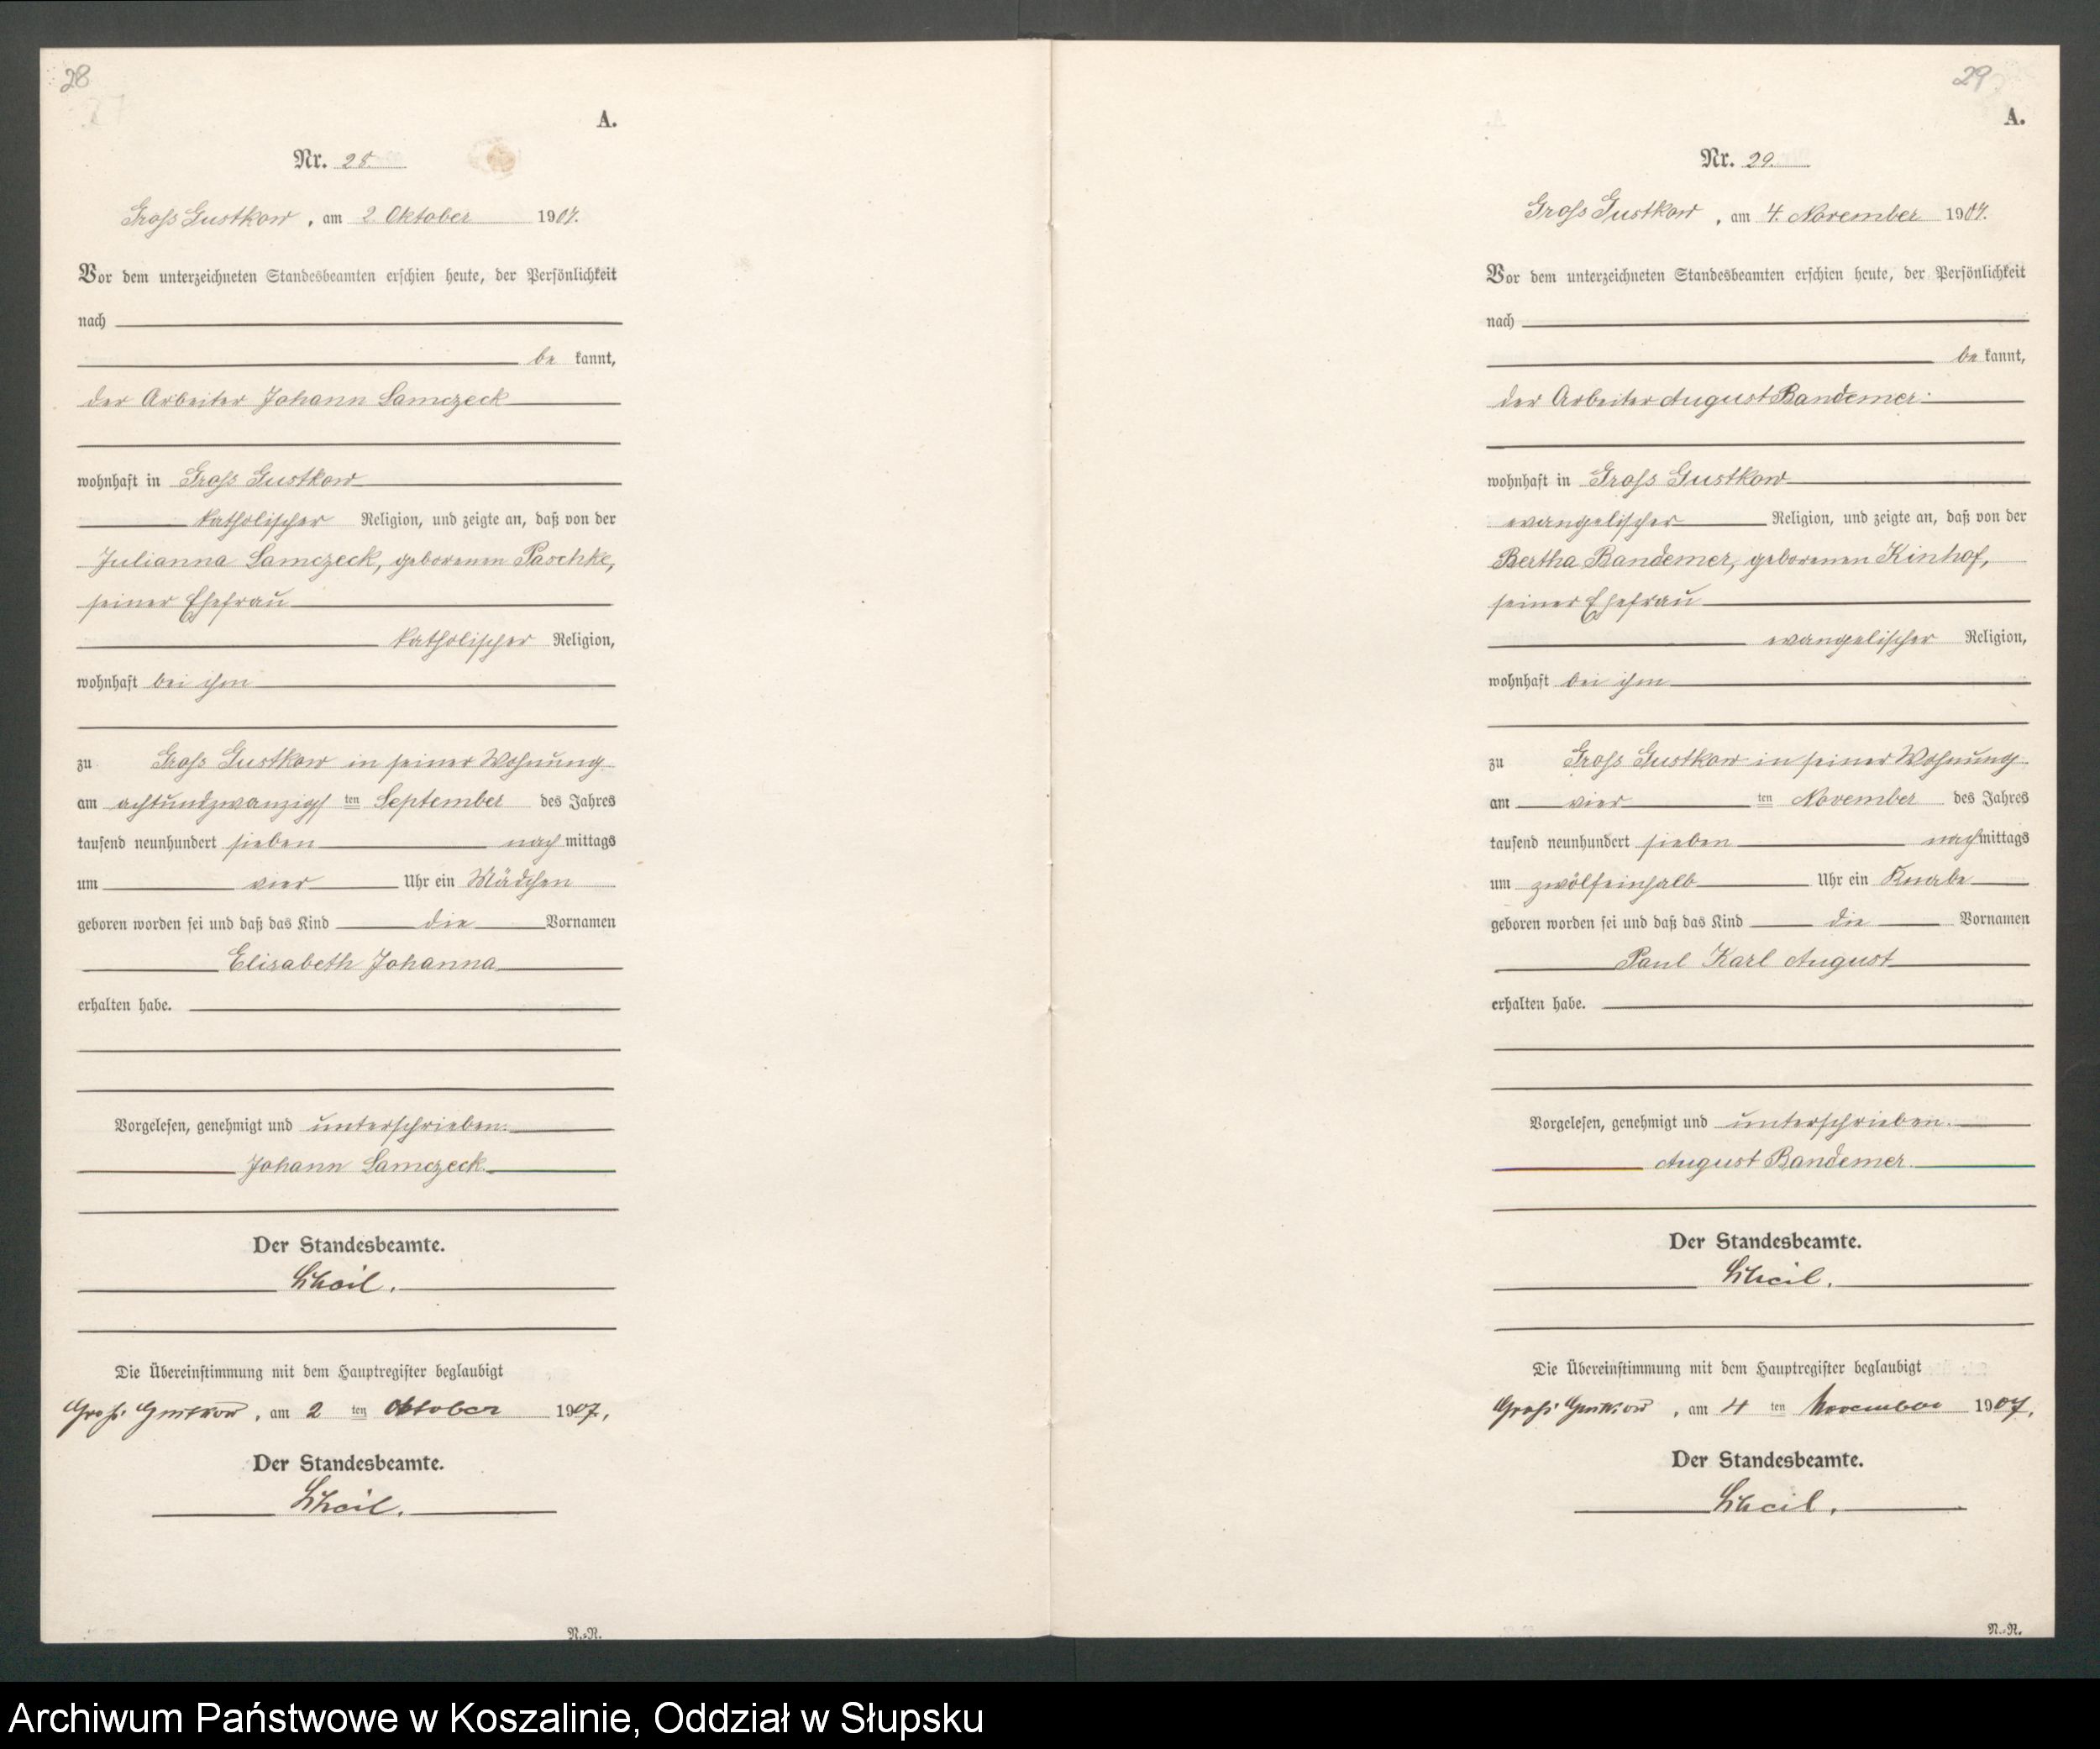 28
A.
Nr. 28.
Groß Gustkow, am 2. Oktober 1907.
Vor dem unterzeichneten Standesbeamten erschien heute, der Persönlichkeit
nach
be kannt,
der Arbeiter Johann Samczeck
wohnhaft in Groß Gustkow
katholischer Religion, und zeigte an, daß von der
Julianna Samczeck, geborenen Paschke,
seiner Ehefrau
katholischer Religion,
wohnhaft bei ihm
zu Groß Gustkow in seiner Wohnung
am achtundzwanzigsten September des Jahres
tausend neunhundert sieben nachmittags
um vier Uhr ein Mädchen
geboren worden sei und daß das Kind die Vornamen
Elisabeth Johanna
erhalten habe.
Vorgelesen, genehmigt und unterschrieben.
Johann Samczeck.
Der Standesbeamte.
Die Übereinstimmung mit dem Hauptregister beglaubigt
Groß Gustkow, am 2 ten Oktober 1907.
Der Standesbeamte.
N.-R.
29
A.
Nr. 29.
Groß Gustkow, am 4. November 1907.
Vor dem unterzeichneten Standesbeamten erschien heute, der Persönlichkeit
nach
be kannt,
der Arbeiter August Bandemer
wohnhaft in Groß Gustkow
evangelischer Religion, und zeigte an, daß von der
Bertha Bandemer, geborenen Kinhof,
seiner Ehefrau
evangelischer Religion,
wohnhaft bei ihm
zu Groß Gustkow in seiner Wohnung
am vier ten November des Jahres
tausend neunhundert sieben nachmittags
um zwölfeinhalb Uhr ein Knabe
geboren worden sei und daß das Kind die Vornamen
Paul Karl August
erhalten habe.
Vorgelesen, genehmigt und unterschrieben.
August Bandemer.
Der Standesbeamte.
Die Übereinstimmung mit dem Hauptregister beglaubigt
Groß Gustkow, am 4 ten November 1907.
Der Standesbeamte.
N.-R.
Archiwum Państwowe w Koszalinie, Oddział w Słupsku